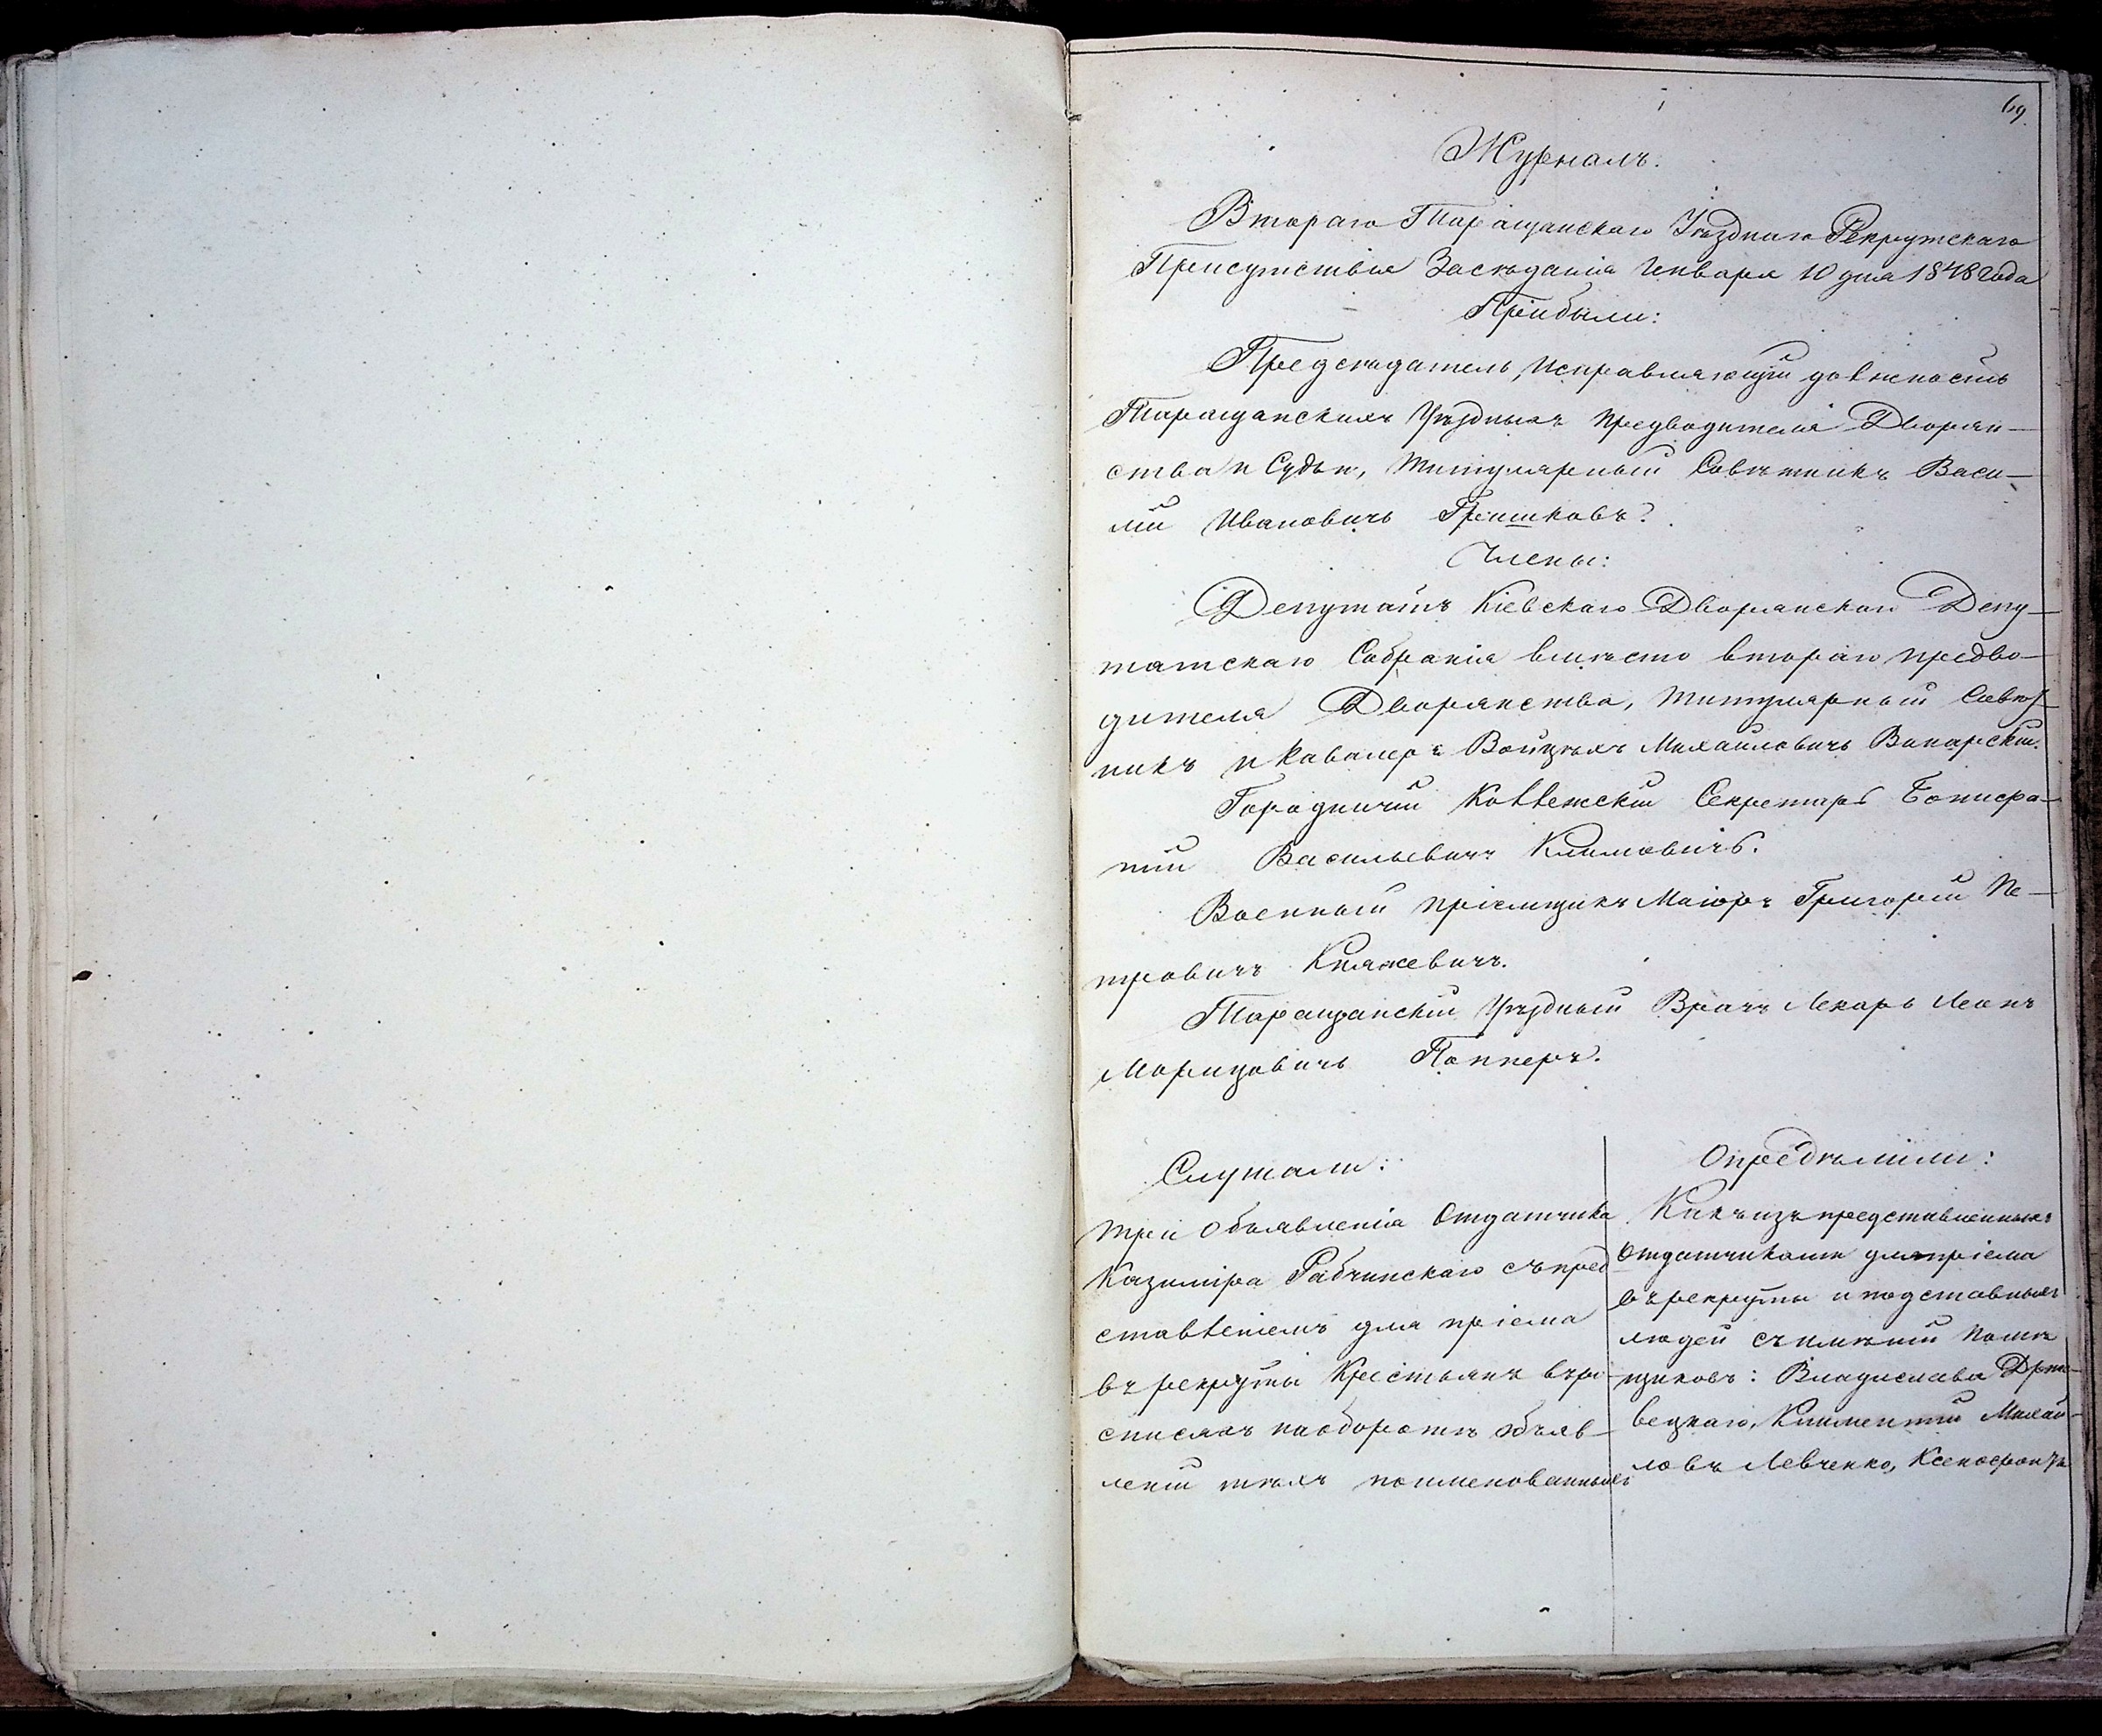 69
Журналъ.
Втораго Таращанскаго Уѣзднаго Рекрутскаго
Присутствія Засѣданія Генваря 10 дня 1848 года
Прибыли:
Предсѣдатель, Исправляющій должность
Таращанскихъ Уѣздныхъ Предводителя Дворян-
ства и Судьи, Титулярный Совѣтникъ Васи-
лій Ивановичъ Гришковъ.
Члены:
Депутатъ Кіевскаго Дворянскаго Депу-
татскаго Собранія вмѣсто втораго предво-
дителя Дворянства, Титулярный Совѣт-
никъ и Кавалеръ Войцѣхъ Михайловичъ Винарскій.
Городничій Коллежскій Секретарь
Васильевичъ Климовичъ.
Военный пріемщикъ Маіоръ Григорій Пе-
тровичъ Княжевичъ.
Таращанскій Уѣздный Врачъ Лекарь Леонъ
Морицовичъ Попперъ.
Слушали:
три объявленія Отдатчика
Казиміра Рабчинскаго съ пред
ставленіемъ для пріема
въ рекруты Крестьянъ въ ро
списяхъ на оборотѣ объяв-
леній тѣхъ поименованныхъ
Опредѣлили:
Какъ изъ представленныхъ
Отдатчикомъ для пріема
въ рекруты и подставныхъ
людей съ имѣній помѣ
щиковъ: Владислава
Климентій Михай-
ловъ Левченко, Ксенофонтъ